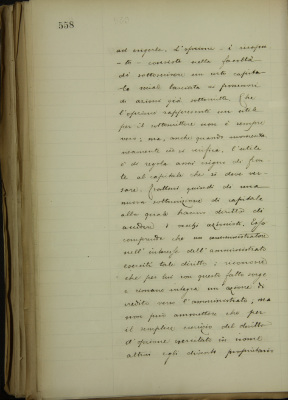 558
ad esigerle. L'opzione è risapu-
to consiste nella facoltà
di sottoscrivere un
di azioni già sottoscritte. Che
l'opzione rappresenti un utile
per il sottoscrittore non è sempre
vero; ma, anche quando
ciò si verifica, l'utile
è di regola assai esiguo di fron-
te al capitale che si deve ver-
sare. Trattasi quindi di una
nuova sottoscrizione di capitale
alla quale hanno diritto di
aderire i vecchi azionisti. Esso
comprende che un amministratore
nell'interesse dell'amministrato
eserciti tale diritto; riconosce
che per lui con questo fatto sorge
e rimane integra un'azione di
credito verso l'amministrato; ma
non può ammettere che per
il semplice esercizio del diritto
d'opzione esercitato in nome
altrui egli diventi proprietario